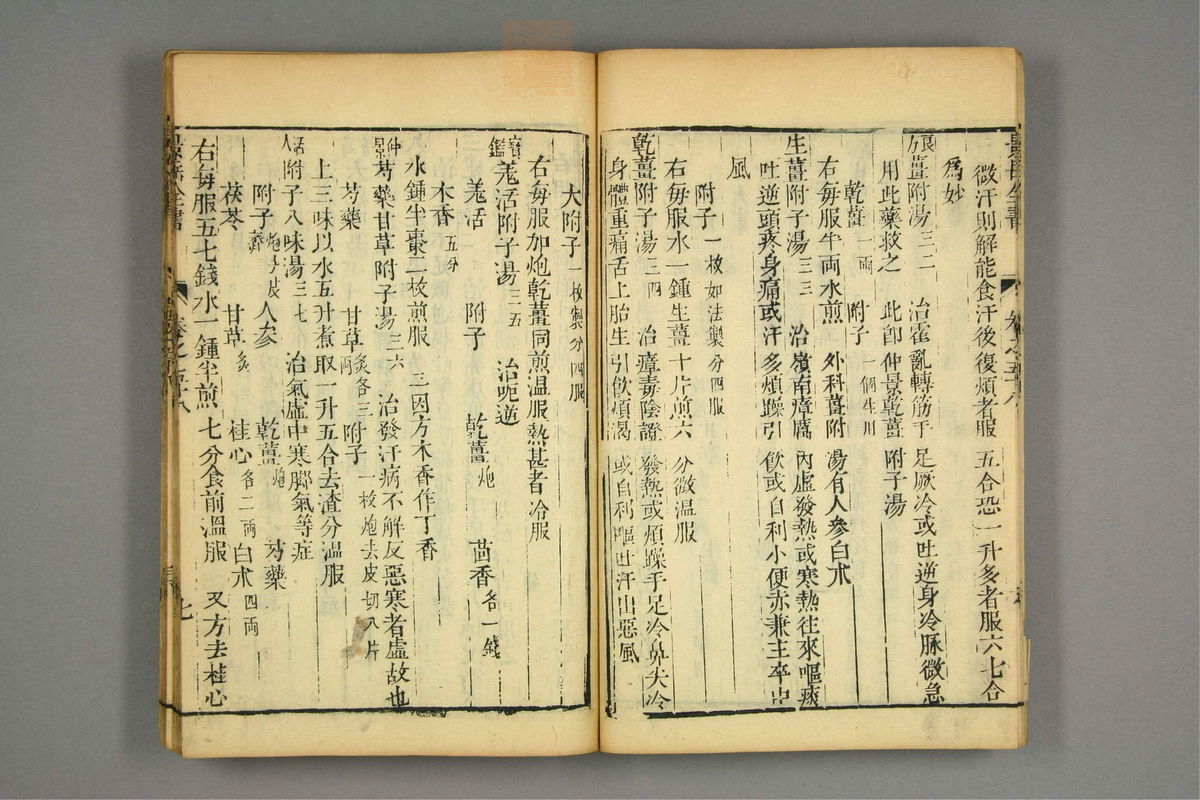 微汗則解能食汗後復煩者服五合恐一升多者服六七合
爲妙
良方薑附湯三二 治霍亂轉筋手足厥冷或吐逆身冷脉微急
用此藥救之 此卽仲景乾薑附子湯
乾薑一兩 附子一個生用
右每服半両水煎 外科薑附湯有人參白朮
生薑附子湯三三 治嶺南瘴厲內虛發熱或寒熱往來嘔痰
吐逆頭疼身痛或汗多煩躁引飲或自利小便赤兼主卒中
風
附子一枚如法製分四服
右每服水一鍾生薑十片煎六分微温服
乾薑附子湯三四 治瘴毒陰證發熱或煩躁手足冷鼻尖冷
身體重痛舌上胎生引飲煩渴或自利嘔吐汗出惡風
大附子一枚製分四服
右每服加炮乾薑同煎温服熱甚者冷服
寶鑑羌活附子湯三五 治呃逆
羌活 附子 乾薑炮 茴香各一錢
木香五分
水鍾半棗二枚煎服 三因方木香作丁香
仲景芍藥甘草附子湯三六 治發汗病不解反惡寒者虛故也
芍藥 甘草炙各三兩 附子一枚炮去皮切八片
上三味以水五升煮取一升五合去渣分温服
活人附子八味湯三七 治氣虛中寒脚氣等症
附子 人參 乾薑炮 芍藥
茯苓 甘草炙 桂心各二両 白朮四両
右每服五七錢水一鍾半煎七分食前温服 又方去桂心